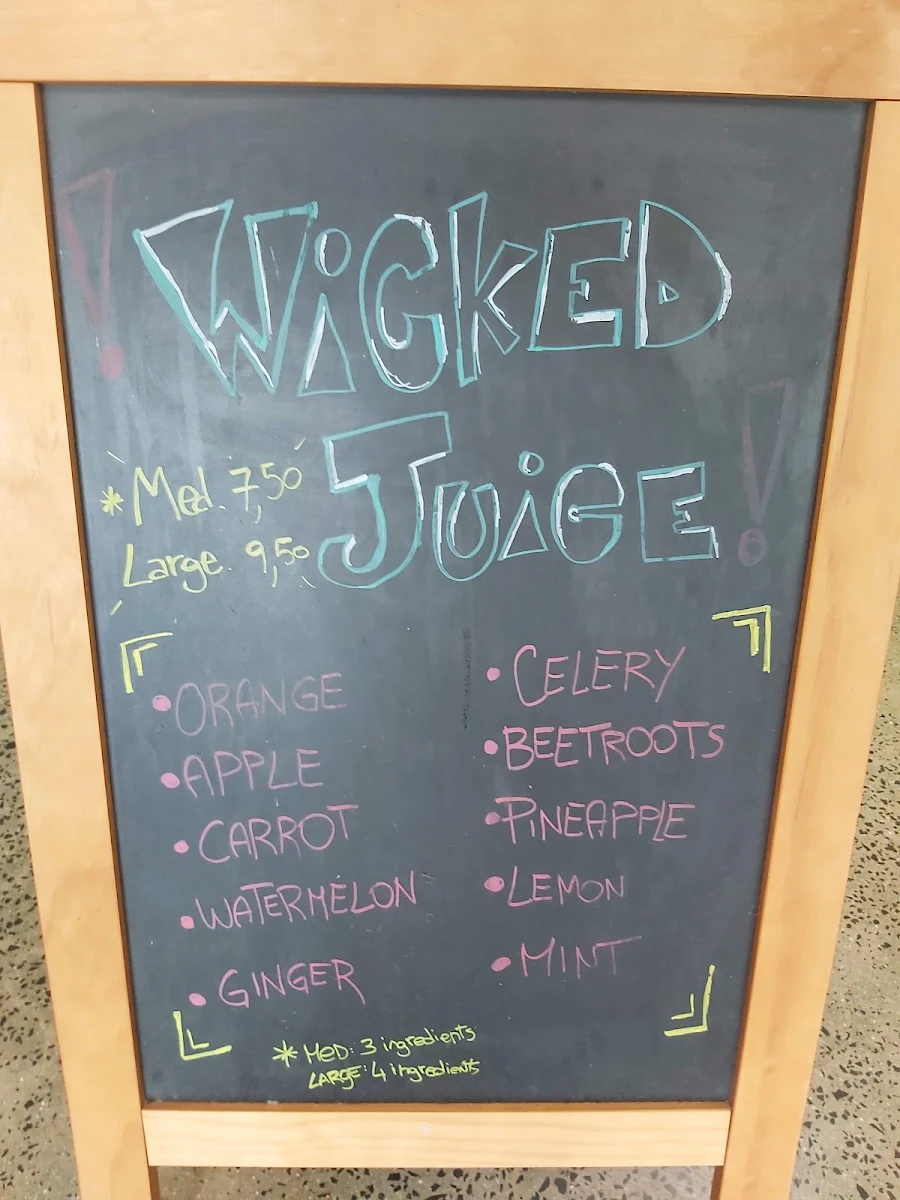 ! WiCKED
JUiCE !
* Med. 7,50
Large. 9,50
• ORANGE
• APPLE
• CARROT
• WATERMELON
• GINGER
• CELERY
• BEETROOTS
• PiNEAPPLE
• LEMON
• MINT
* MED: 3 ingredients
LARGE: 4 ingredients